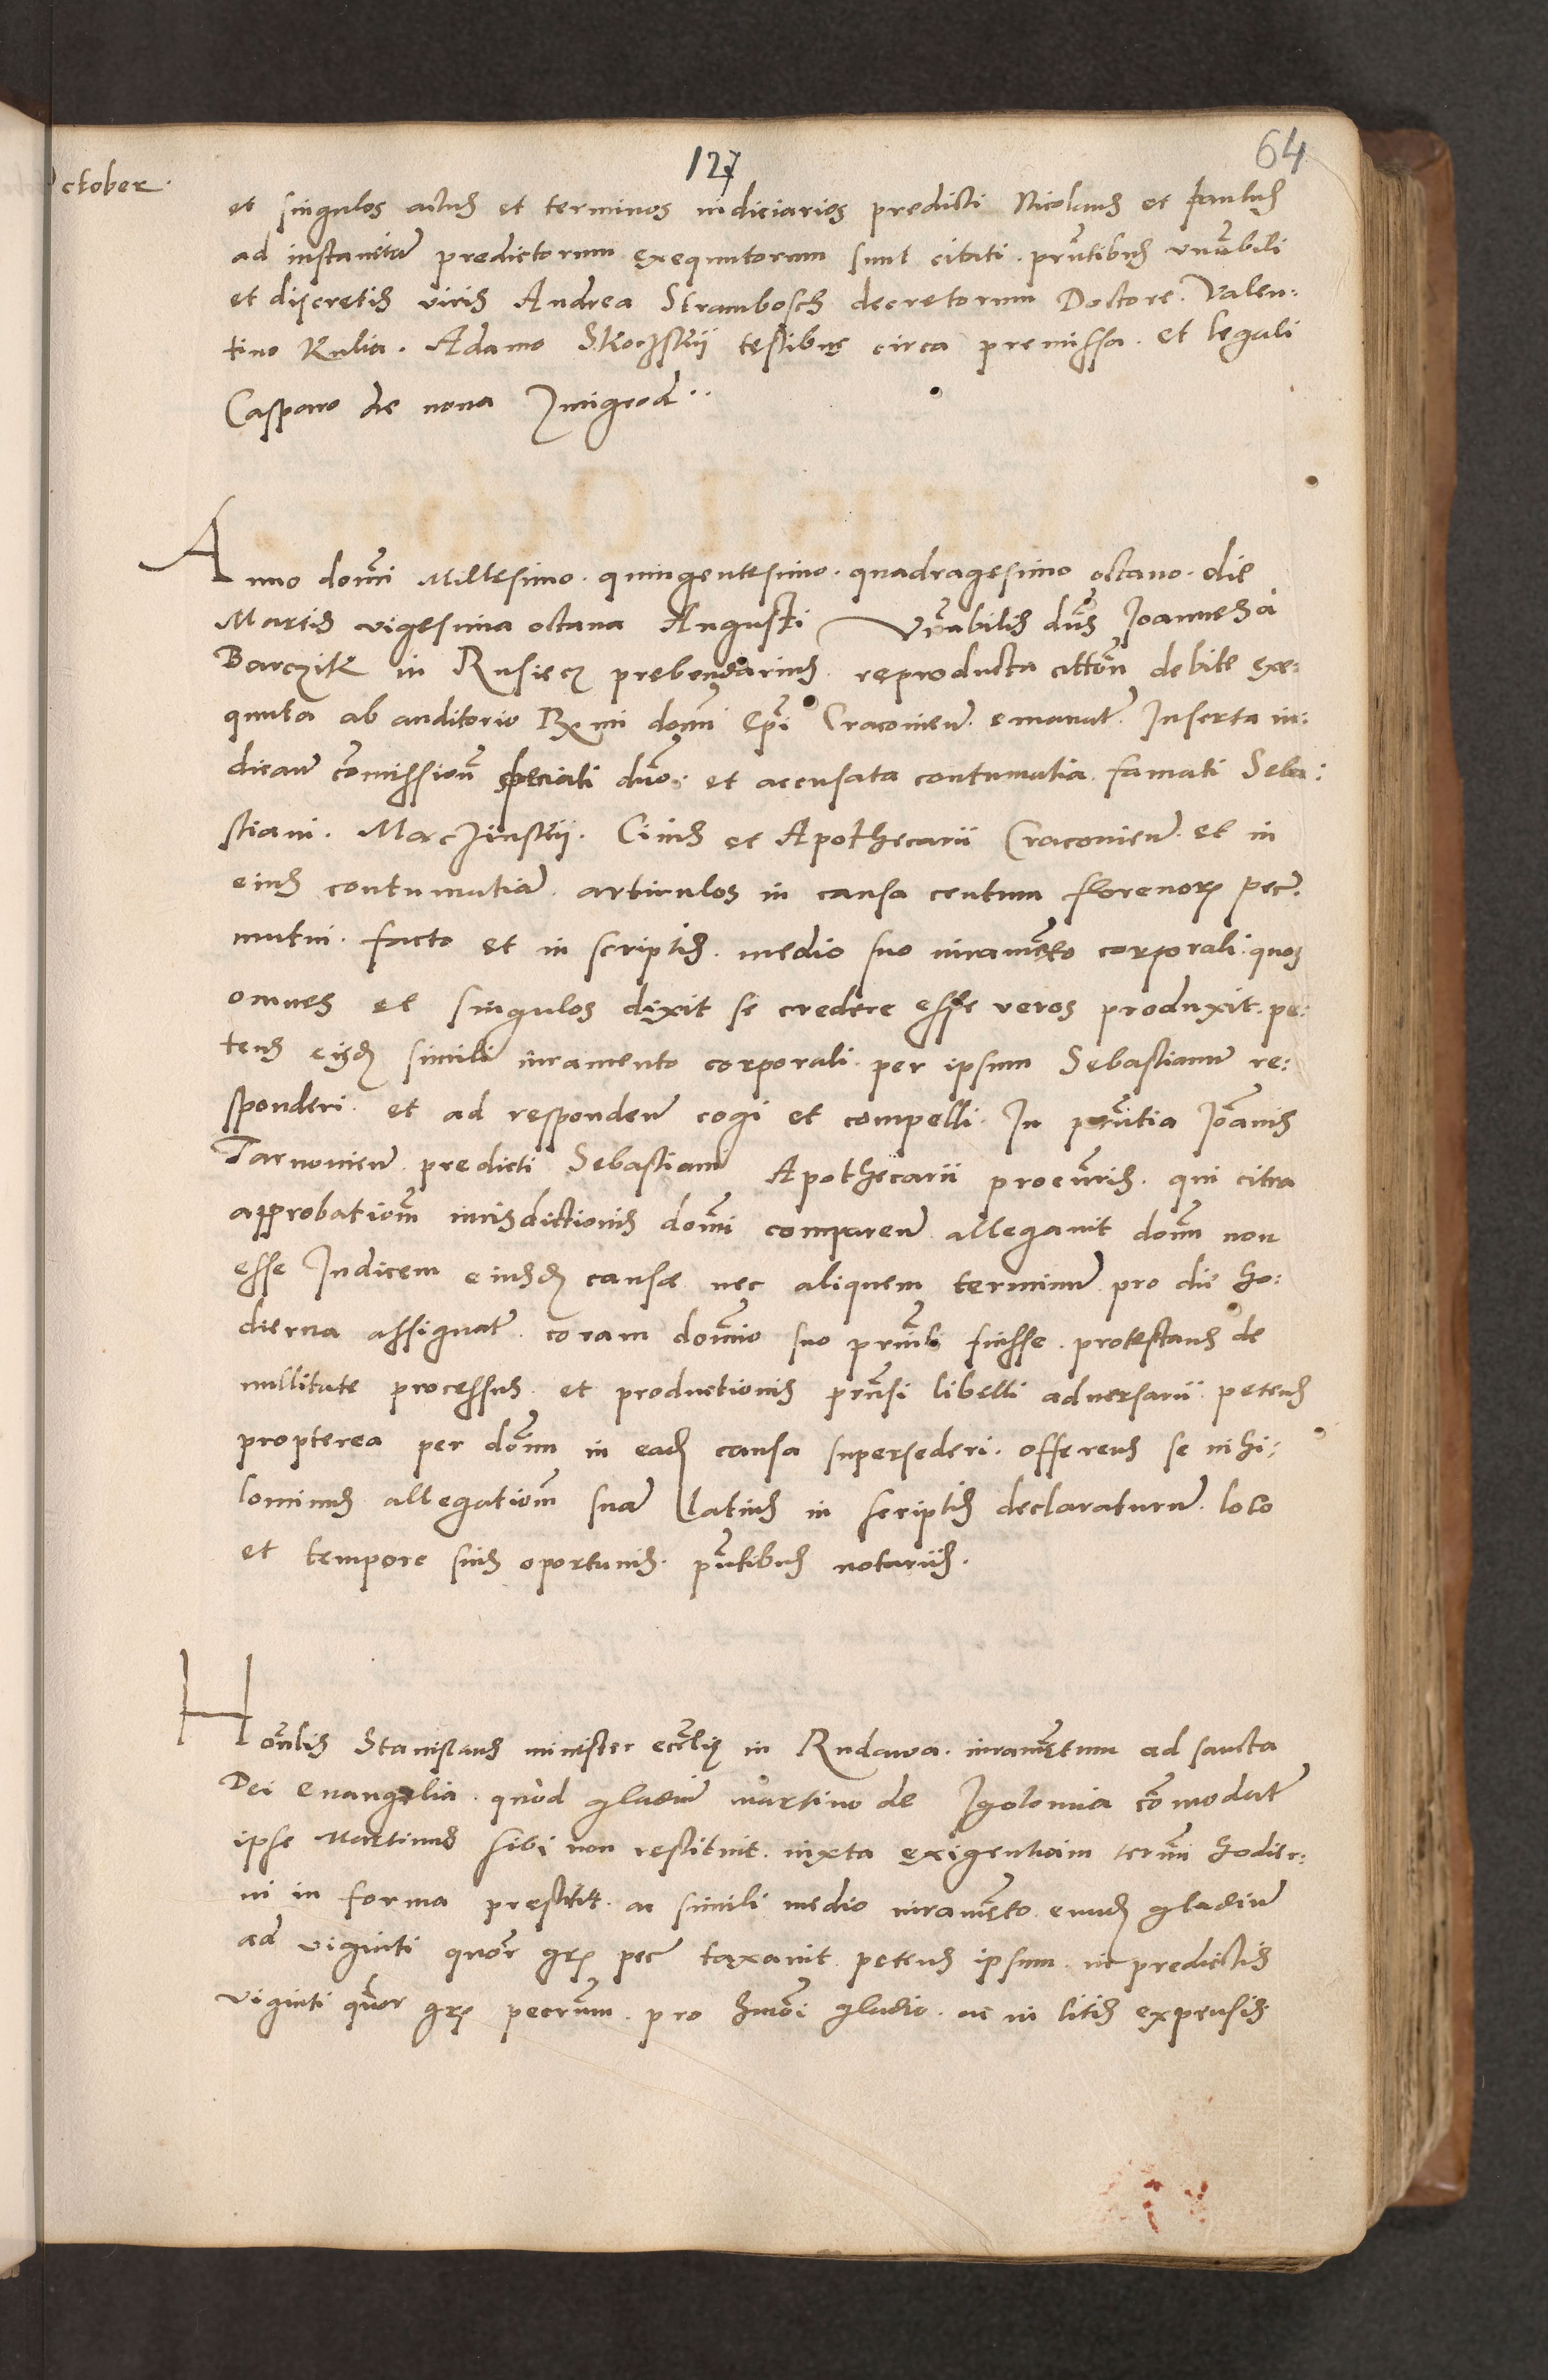 127
64
October.
et singulos actus et terminos iudiciarios predicti Nicolaus et Paulus
ad instantiam predictorum exequutorum sunt citati. pñtibus vñabili
et discretis viris Andrea Strambosch decretorum Doctore. Valen:
tino Kulia. Adamo Skorzskii testibus circa premissa. et legali
Casparo de nova Imigrod..
Anno doñi Millesimo. quingentesimo. quadragesimo octavo. die
Martis vigesima octava Augusti Vñabilis dñs Joannes a
Barczik in Rusiecz prebendarius. reproducta cittõn debite exe:
quuta ab auditorio Rmi domĩ Epĩ Cracovieñ. emanat. Inserta in:
dicañ comissioñ speciali duõ: et accusata contumatia famati Seba:
stiani. Marczinskii. Civis et Apothecarii Cracovieñ. et in
eius contumatiã. articulos in causa centum florenorꝫ pecũ.
mutui. facto et in scriptis. medio suo iuramẽto corporali. quos
omnes et singulos dixit se credere esse veros produxit. pe:
tens eisdꝫ simili iuramento corporali. per ipsum Sebastianũ re:
sponderi. et ad respondenũ cogi et compelli. In pñtia Joãnis
Tarnovieñ. predicti Sebastiani Apothecarii procũris. qui citra
approbationẽ iurisdictionis doñi compareñ. allegavit doñm non
esse Iudicem eiusdꝫ causæ nec aliquem terminũ pro die ho:
dierna assignatũ. coram domĩo suo prñali fuisse. protestans de
nullitate processus. et productionis prñsi libelli adversarii petens
propterea per doñm in eadꝫ causa supersederi. offerens se nihi:
lominus allegationẽ suã latius in scriptis declaraturũ. loco
et tempore suis oportunis. pñtibus notariis.
Honẽlis Stanislaus minister ecclĩe in Rudawa. iuramẽtum ad sancta
Dei evangelia. quod gladiũ martino de Igolomia cõmodatũ
ipse Martinus sibi non restituit. iuxta exigentiam termĩ hodier:
ni in forma prestitit. ac simili medio iuramẽto. eundꝫ gladiũ
ad viginti quõr grꝫ pecũ taxavit. petens ipsum in predictis
viginti quõr grꝫ pecũm. pro hmõi gladio. ac in litis expensis